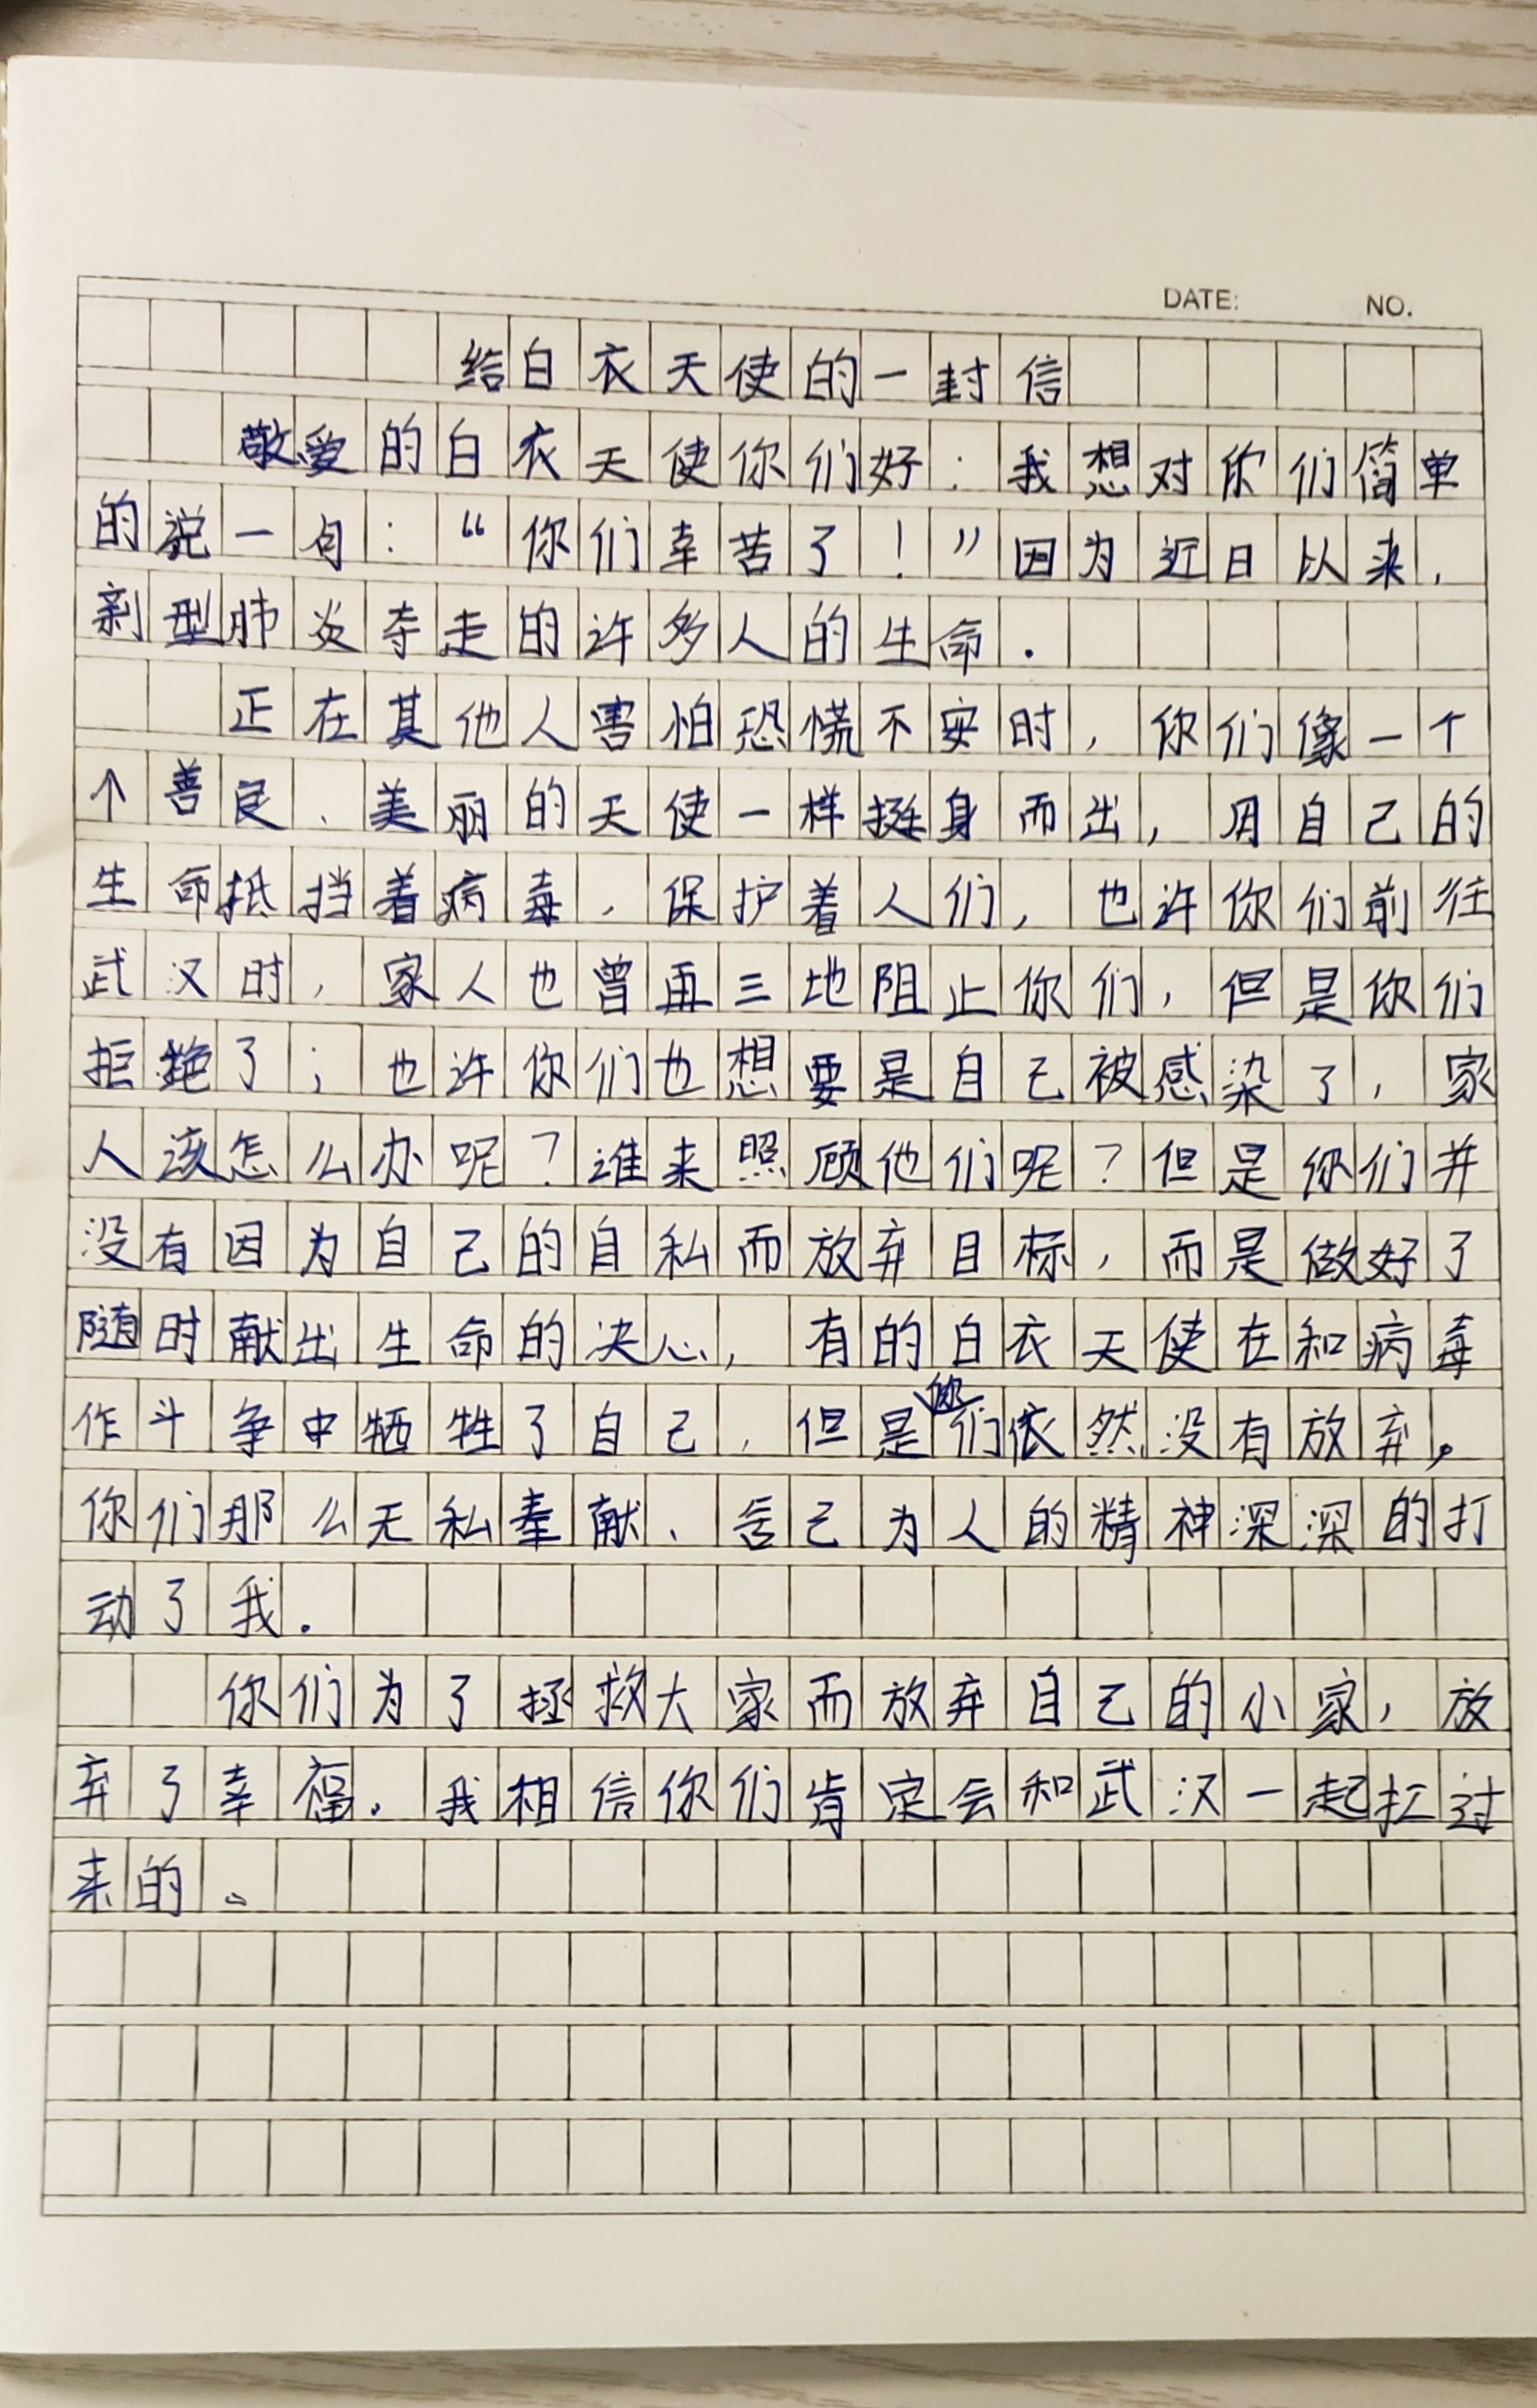 DATE: NO.
给白衣天使的一封信
敬爱的白衣天使你们好：我想对你们简单
的说一句：“你们幸苦了！”因为近日以来，
新型肺炎夺走的许多人的生命.
正在其他人害怕恐慌不安时，你们像一个
个善良、美丽的天使一样挺身而出，用自己的
生命抵挡着病毒，保护着人们，也许你们前往
武汉时，家人也曾再三地阻止你们，但是你们
拒绝了；也许你们也想要是自己被感染了，家
人该怎么办呢？谁来照顾他们呢？但是你们并
没有因为自己的自私而放弃目标，而是做好了
随时献出生命的决心，有的白衣天使在和病毒
作斗争中牺牲了自己，但是你们依然没有放弃，
你们那么无私奉献、舍己为人的精神深深的打
动了我.
你们为了拯救大家而放弃自己的小家，放
弃了幸福.我相信你们肯定会和武汉一起扛过
来的。